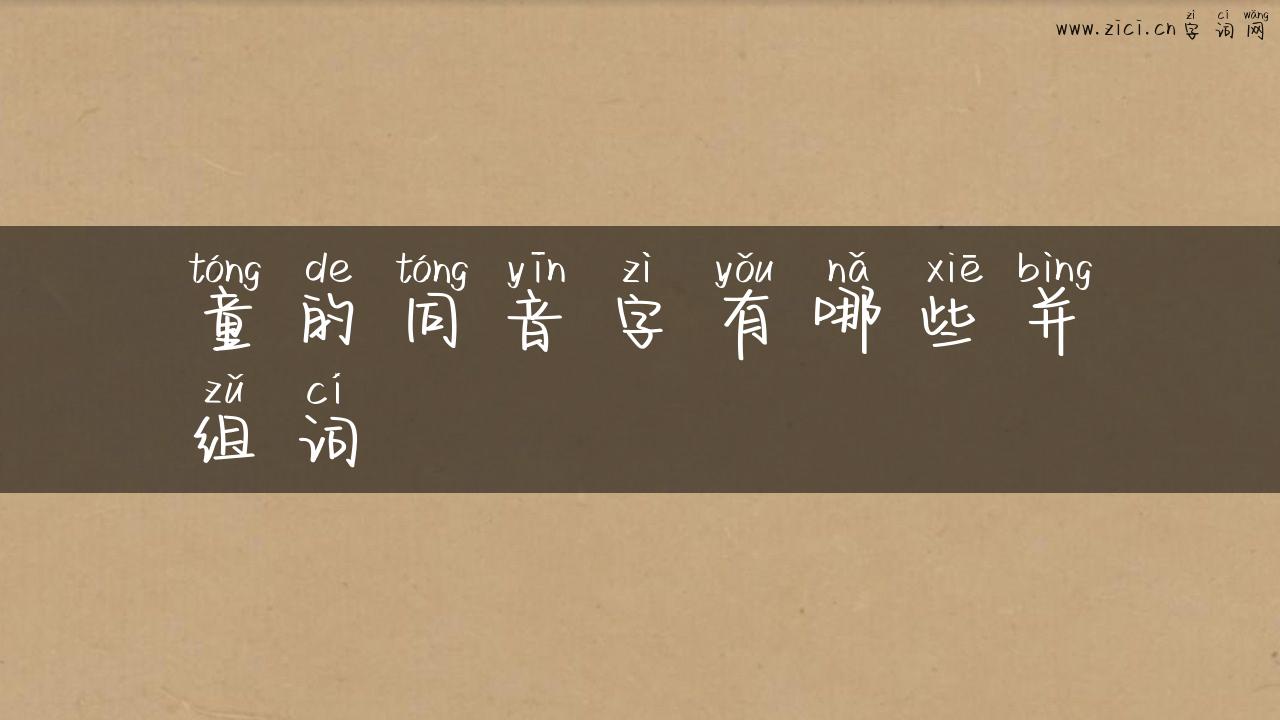 zì cí wǎng
www.zici.cn 字词网
tóng de tóng yīn zì yǒu nǎ xiē bìng
童的同音字有哪些并
zǔ cí
组词